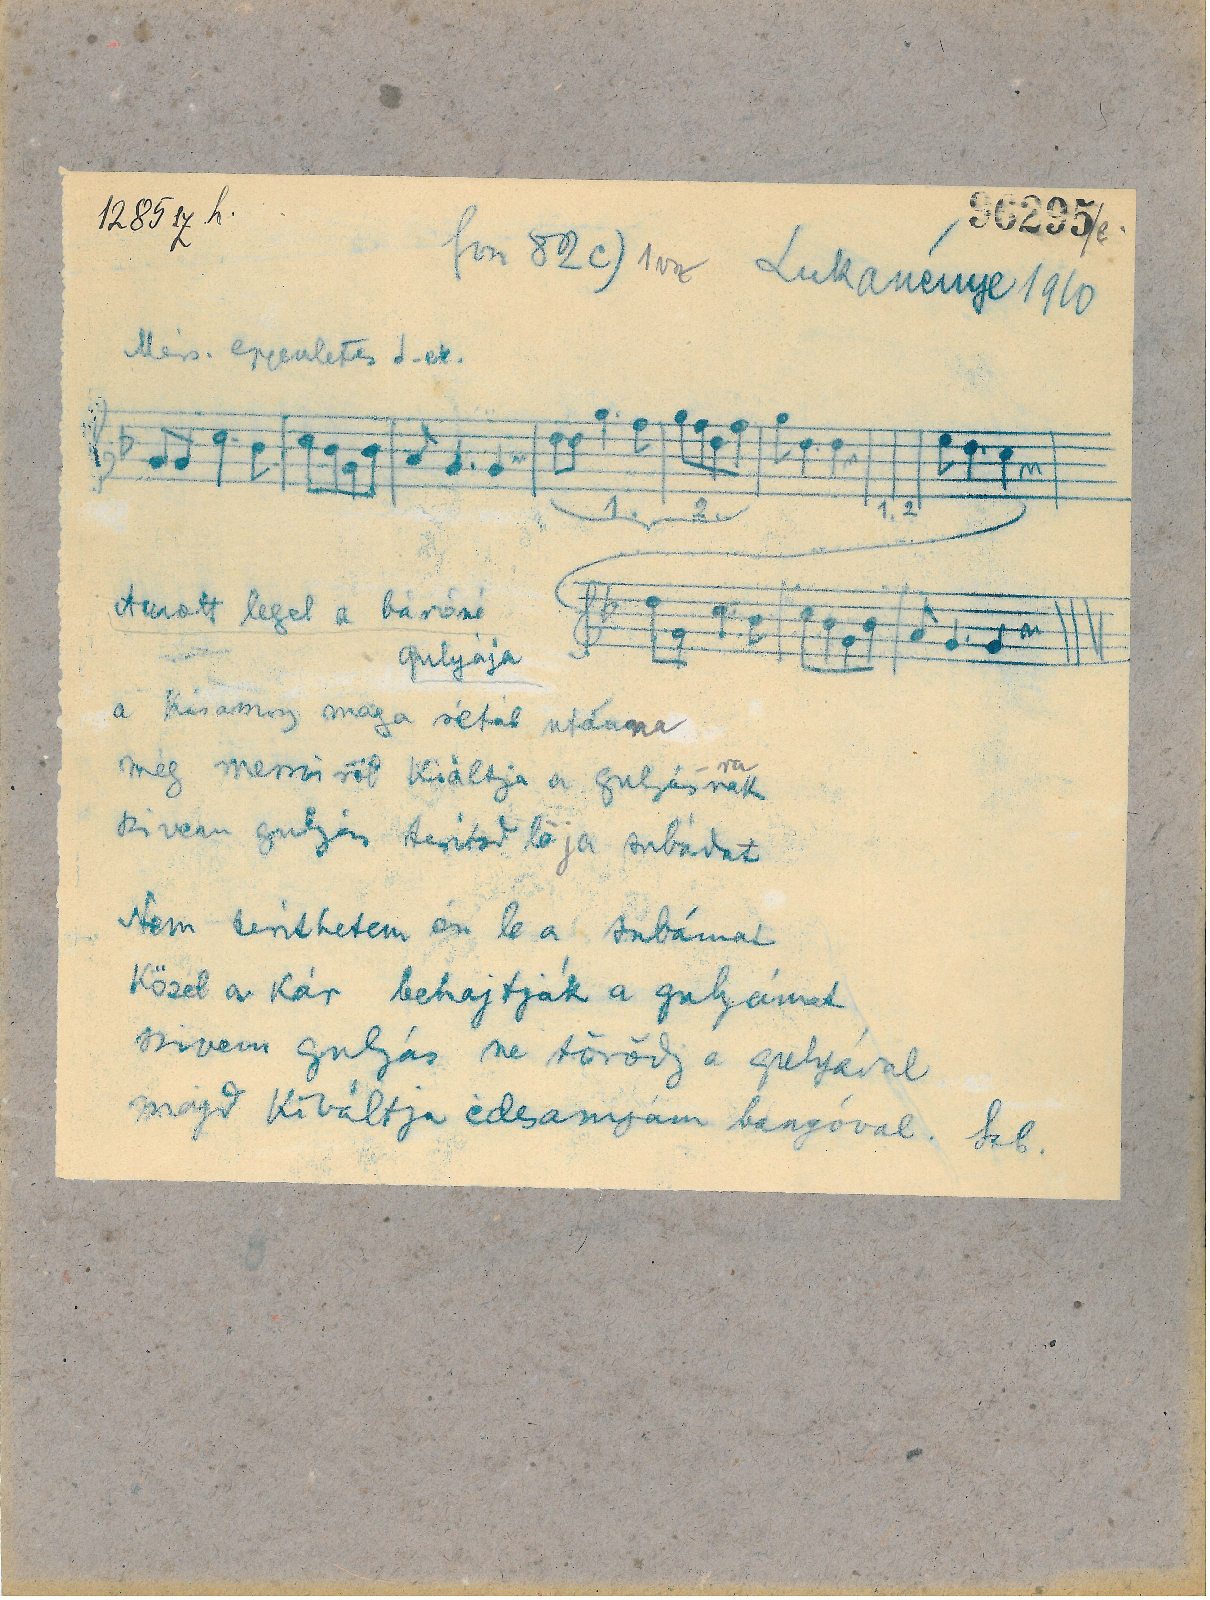 1285 sz h.
96295/e.
fon 82 c) 1 vsz Lukanénye 1910
Mérs. egyenletes
1. 2.
1. 2
Amott legel a báróné
gulyája
a kisasszony maga sétál utánna
még messziről kiáltja a gulyás-nak
ra
szivem gulyás terítsd le ja subádat
Nem teríthetem én le a subámat
Közel a kár behajtják a gulyámat
szivem gulyás ne törődj a gulyával
majd kiváltja édesanyám bangóval. Szb.